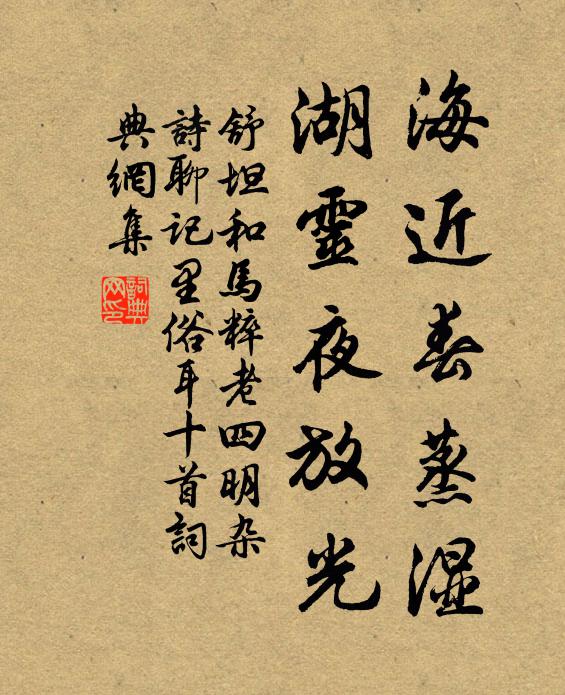 海近春蒸湿
湖靈夜放光
舒坦和馬粹老四明杂
詩聊記里俗耳十首詞
典網集
詞典
网印